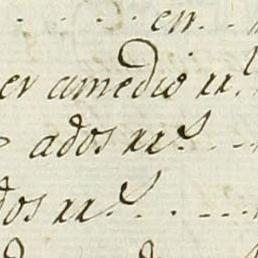 en
er a medio rr.
a dos rr.s
dos rr.s